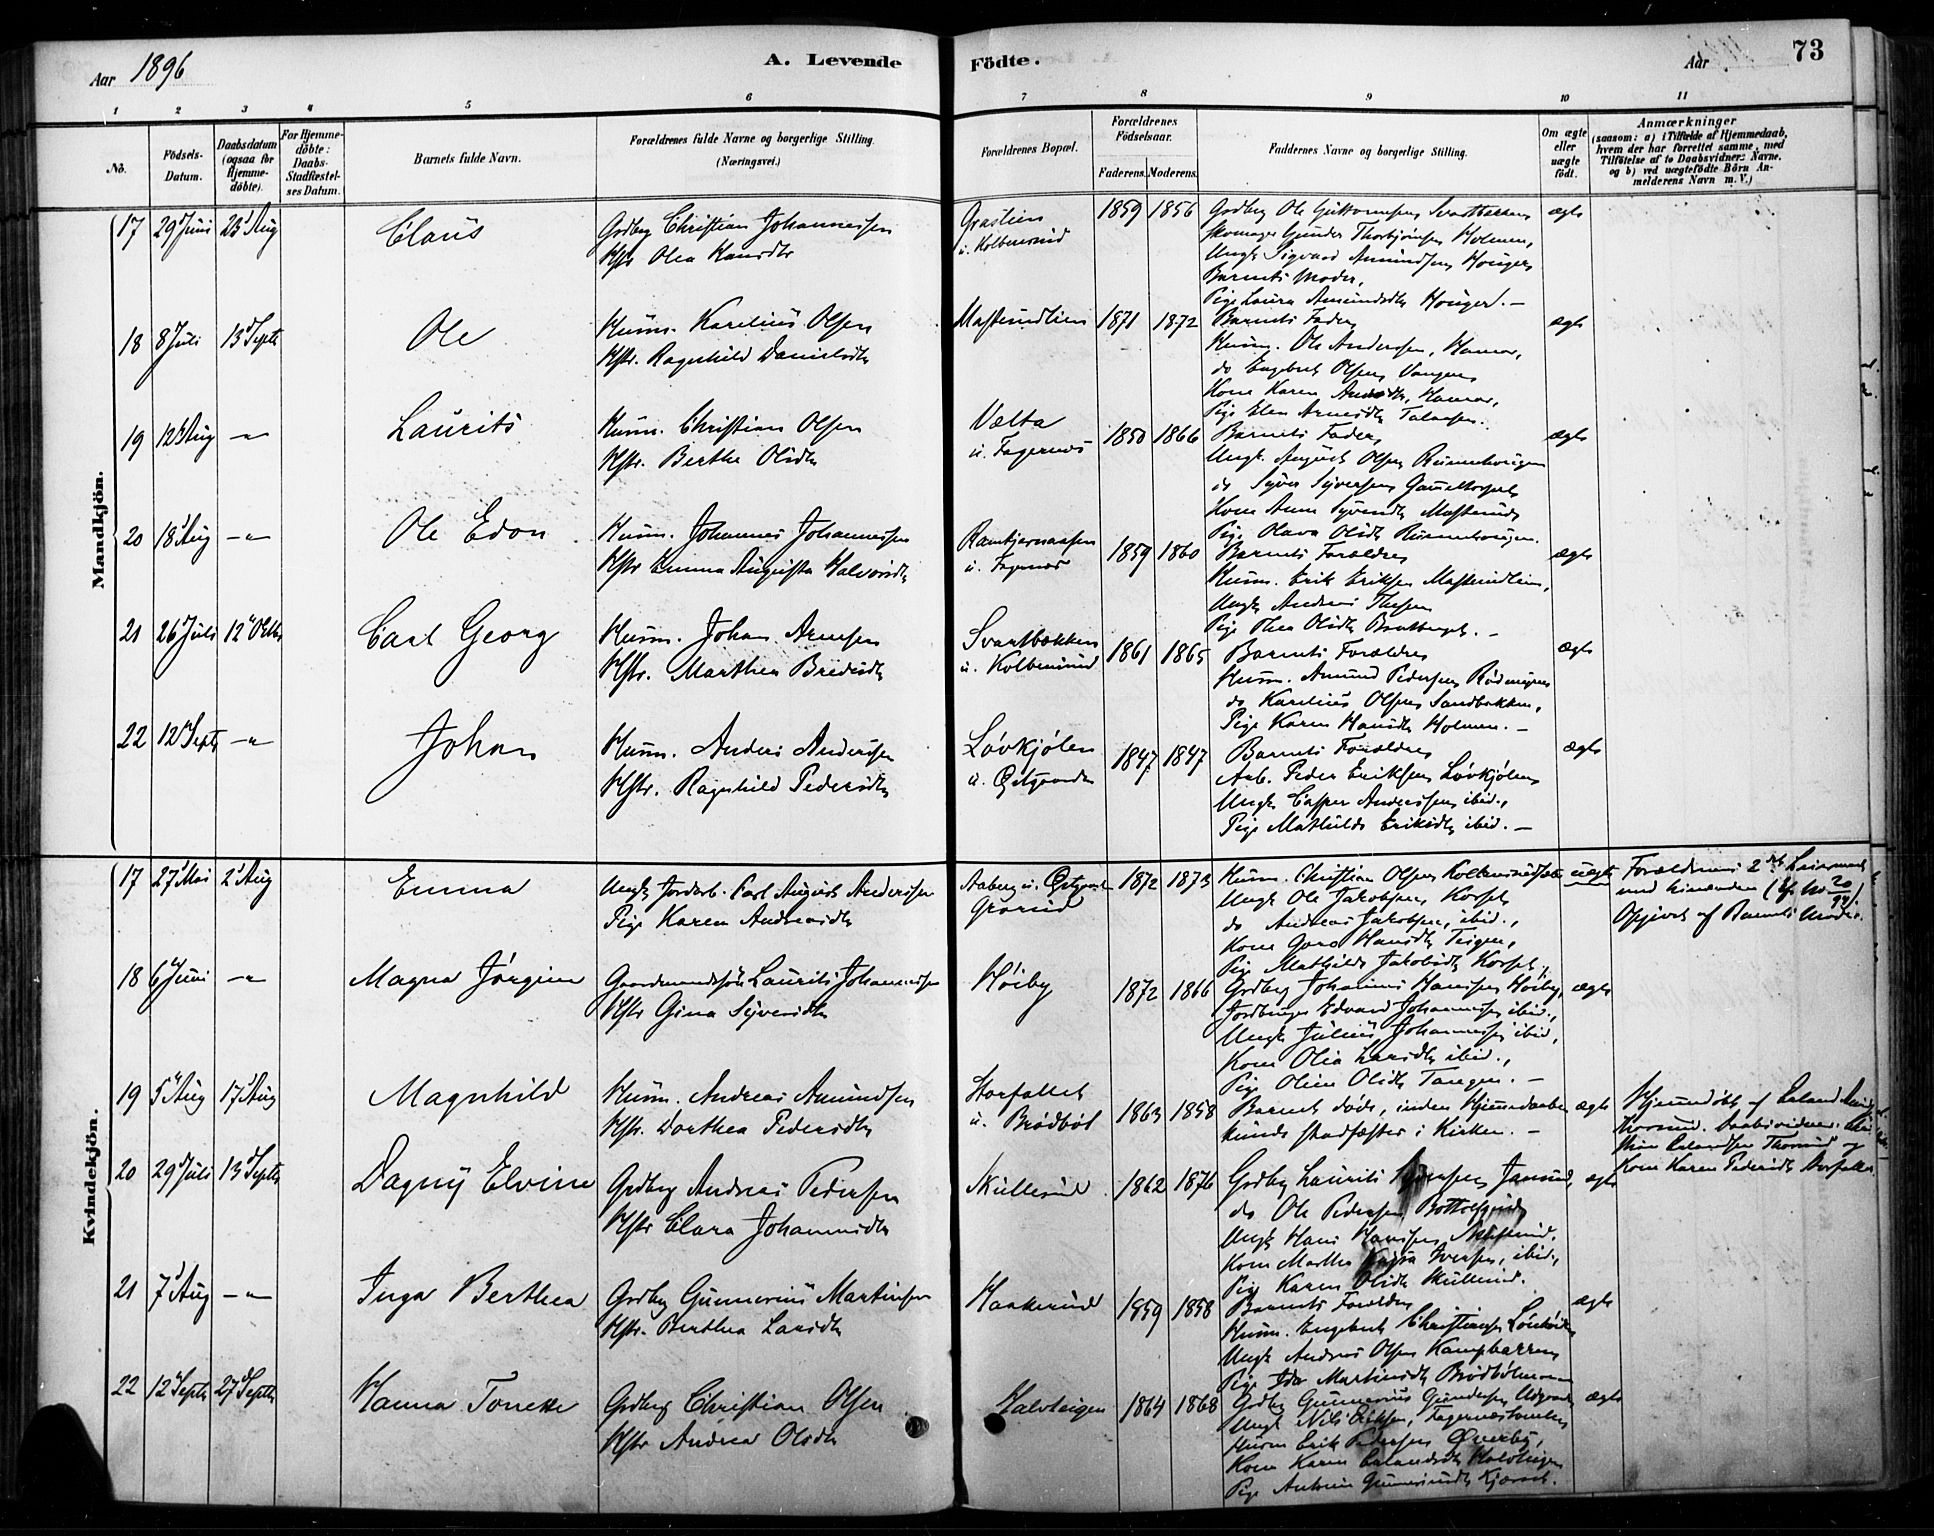 Aar 1896
A. Levende
Födte.
Aar
73
1 2 3 4 5 6 7 8 9 10 11
No.
Födsels-Datum.
Daabsdatum (ogsaa for Hjemme-döbte).
For Hjemme-döbte: Daabs-Stadfæstel-ses Datum.
Barnets fulde Navn.
Forældrenes fulde Navne og borgerlige Stilling.
(Næringsvei.)
Forældrenes Bopæl.
Forældrenes Födselsaar.
Faderens. Moderens.
Faddernes Navne og borgerlige Stilling.
Om ægte eller uægte födt.
Anmærkninger
(saasom: a) i Tilfælde af Hjemmedaab,
hvem der har forrettet samme, med
Tilföielse af to Daabsvidners Navne,
og b) ved uægtefödte Börn An-
melderens Navn m. V.)
Mandkjön.
17 29 Juni 23 Aug Claus
Grdbg Christian Johannessen
Hstr Olea Hansdtr
u. Kolbensrud
1859 1856
Grdbg Ole Guttormsen Svartbækken
Skomager Gunder Thorbjörnsen Holmen,
Ungk Sigvard Amundsen Houger
Barnets Moder,
Pige Laura Amundsdtr Houger. —
ægte
18 8 Juli 13 Septr Ole
Husm. Karelius Olsen
Hstr. Ragnhild Danielsdtr
Masterudlien
1871 1872
Barnets Fader
Husm. Ole Anderssen, Hamar,
do Engebret Olsen Vangen
Kone Karen Andersdtr, Hamar,
Pige Elen Arnesdtr
ægte
19 12 Aug —"— Laurits
Husm. Christian Olsen
Hstr. Berthe Olsdtr
Vælta
u. Fagernæs
1850 1866
Barnets Fader,
Ungk. August Olsen
do Syver Syversen
Kone Anne Syversdtr Masterud
Pige Olava Olsdtr
ægte
20 18 Aug —"— Ole Edon
Husm. Johannes Johannessen
Hstr Emma Augusta Halvorsdtr
u. Fagernæs
1859 1860
Barnets Forældre,
Husm. Erik Eriksen Masterudlien,
Ungk Andreas
Pige Thea Olsdtr Bratberget. —
ægte
21 26 Juli 12 Octbr Carl Georg
Husm. Johan Arnesen
Hstr. Marthea Bredesdtr
Svartbækken
u. Kolbensrud
1861 1865
Barnets Forældre
Husm. Amund Pedersen Rödmyren
do Karelius Olsen Sandbækken,
Pige Karen Hansdtr Holmen. —
ægte
22 12 Septr —"— Johan
Husm. Anders Anderssen
Hstr. Ragnhild Pedersdtr
Lövkjölen
u. Østgaarden
1847 1847
Barnets Forældre
Arb. Peder Eriksen Lövkjölen,
Ungk Casper Anderssen ibid.,
Pige Mathilde Eriksdtr ibid. —
ægte
Kvindekjön.
17 27 Mai 2 Aug Emma
Ungk Jordarb. Carl August Anderssen
Pige Karen Andreasdtr
Aaberg u. Østgaard
Grorud
1872 1873
Husm. Christian Olsen
Ungk Ole Jakobsen Korset,
do Andreas Jakobsen, ibid.,
Kone Goro Hansdtr Teigen,
Pige Mathilde Jakobsdtr Korset.
uægte
Forældrenes 2det Leiermaal
med hinanden (Cfr. No 20/94).
Opgivet af Barnets Moder.
18 6 Juni —"— Magna Jörgine
Gaardmandssön Laurits Johannessen
Hstr Gina Syversdtr
Höiby
1872 1866
Grdbg Johannes Hansen Höiby,
Jordbruger Edvard Johannessen ibid.,
Ungk Julius Johannessen ibid,
Kone Olea Larsdtr ibid.,
Pige Oline Olsdtr Tangen. —
ægte
19 5 Aug 17 Aug Magnhild
Husm. Andreas Amundsen
Hstr. Dorthea Pedersdtr
Storfallet
u. Brödböl
1863 1858
Barnet döde, inden Hjemmedaaben
kunde stadfæstes i Kirken. —
ægte
Hjemmedöbt af Erland
Thorsrud. Daabsvidner:
Erlandsen Thorsrud og
Kone Karen Pedersdtr Storfallet
20 29 Juli 13 Septr Dagny Elvine
Grdbg Andreas Pedersen
Hstr Clara Johannesdtr
Skullerud
1862 1876
Grdbg Laurits Pedersen
do Ole Pedersen
Ungk Hans Hanssen
Kone Marthe Iversen, ibid.,
Pige Karen Olsdtr Skullerud.
ægte
21 7 Aug —"— Inga Berthea
Grdbg Gunnerius Martinsen
Hstr. Berthea Larsdtr
Haakerud
1859 1858
Barnets Forældre
Husm. Engebret Christiansen
Ungk Andreas Olsen
Pige Ida Martinsdtr
ægte
22 12 Septr 27 Septbr Hanna Tonette
Grdbg Christian Olsen
Hstr Andrea Olsdtr
Halvteigen
1864 1868
Grdbg Gunnerius Gundersen
Ungk Nils Eriksen,
Husm Erik Pedersen Øverby,
Kone Karen Erlandsdtr Halvteigen
Pige Antonie Gunneriusdtr
ægte